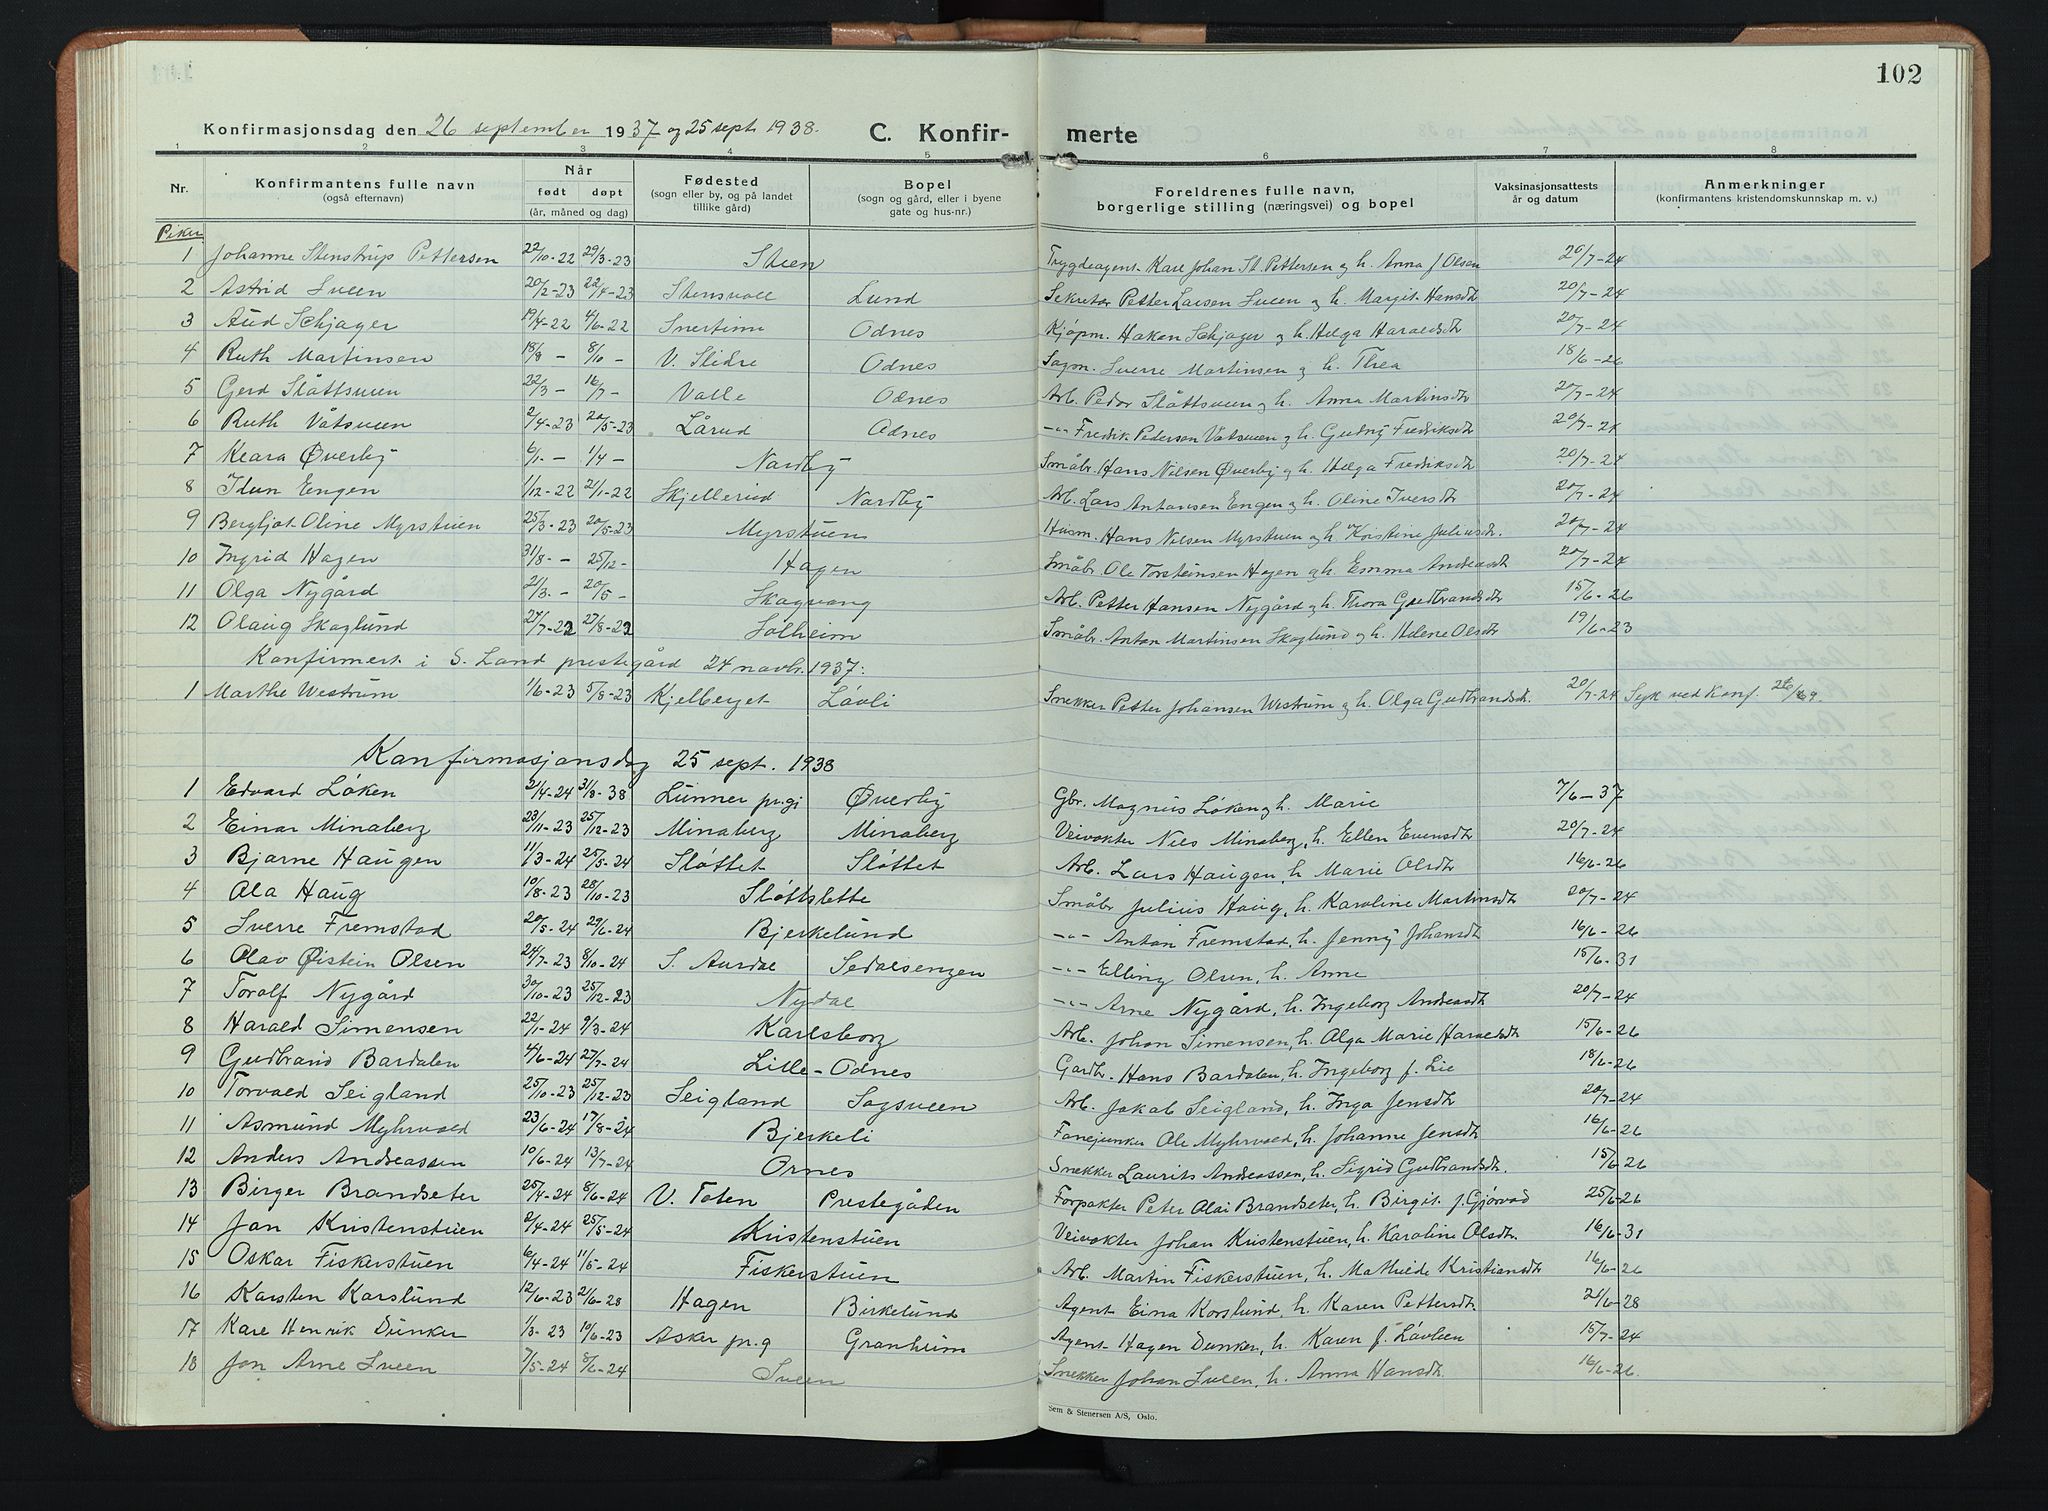 102
Konfirmasjonsdag den 26 september 1937 og 25 sept. 1938. C. Konfir- merte
1 2 3 4 5 6 7 8
Nr. Konfirmantens fulle navn (også efternavn) Når født døpt (år, måned og dag) Fødested (sogn eller by, og på landet tillike gård) Bopel (sogn og gård, eller i byene gate og hus-nr.) Foreldrenes fulle navn, borgerlige stilling (næringsvei) og bopel Vaksinasjonsattests år og datum Anmerkninger (konfirmantens kristendomskunnskap m. v.)
Piker
1 Johanne Stenstrup Pettersen 22/10-22 29/3-23 Steen Trygdeagent Karl Johan St. Pettersen og h. Anna J Olsen 20/7-24
2 Astrid Sveen 20/2-23 22/4-23 Stensvoll Lund Sekretær Petter Larsen Sveen og h. Margit Hansdtr 20/7-24
3 Aud Schjager 19/4-22 4/6-22 Snertinn Odnes Kjøpm. Hakon Schjager og h. Helga Haraldsdtr 20/7-24
4 Ruth Martinsen 18/8 - 8/10 - V. Slidre Odnes Sagm. Sverre Martinsen og h. Thea 18/6-26
5 Gerd Slåttsveen 22/3 - 16/7 - Valle Odnes Arb. Peder Slåttsveen og h. Anna Martinsdtr 20/7-24
6 Ruth Våtsveen 2/4-23 20/5-23 Lårud Odnes -"- Fredrik Pedersen Våtsveen og h. Gudny Fredriksdtr 20/7-24
7 Klara Øverby 6/1 - 1/4 - Nordby Småbr. Hans Nilsen Øverby og h. Helga Fredriksdtr 20/7-24
8 Idun Engen 1/12-22 21/1-22 Skjellerud Nordby Arb. Lars Antonsen Engen og h. Oline Iversdtr 20/7-24
9 Bergljot Oline Myrstuen 25/3-23 20/5-23 Myrstuen Husm. Hans Nilsen Myrstuen og h. Kristine Juliusdtr. 20/7-24
10 Ingrid Hagen 31/8 - 25/12 - Hagen Småbr. Ole Torsteinsen Hagen og h. Emma Andreasdtr 20/7-24
11 Olga Nygård 21/3 - 20/5 - Skogvang Arb. Petter Hansen Nygård og h. Thora Gudbrandsdtr 15/6-26
12 Olaug Skoglund 27/7-22 27/8-22 Solheim Småbr. Anton Martinsen Skoglund og h. Helene Olsdtr 19/6-23
Konfirmert i S. Land prestegård 24 novbr. 1937:
1 Marthe Westrum 1/6-23 5/8-23 Kjelberget Løvli Snekker Petter Johansen Westrum og h. Olga Gudbrandsdtr. 20/7-24 Syk ved Konf. 26/9.
Konfirmasjonsdag 25 sept. 1938
1 Edvard Løken 2/4-24 31/8-38 Lunner pr.gj Øverby Gbr. Magnus Løken og h. Marie 7/6-37
2 Einar Minaberg 23/11-23 25/12-23 Minaberg Minaberg Veivokter Nils Minaberg, h. Ellen Evensdtr 20/7-24
3 Bjarne Haugen 11/3-24 25/5-24 Sløttet Sløttet Arb. Lars Haugen, h. Marie Olsdtr 16/6-26
4 Ola Haug 10/8-23 28/10-23 Sløttslette Småbr Julius Haug, h. Karoline Martinsdtr 20/7-24
5 Sverre Fremstad 20/5-24 29/6-24 Bjerkelund -"- Anton Fremstad, h. Jenny Johansdtr 16/6-26
6 Olav Øistein Olsen 24/7-23 8/10-24 S. Aurdal Sedalsengen -"- Elling Olsen, h. Anne 15/6-31
7 Toralf Nygård 30/10-23 25/12-23 Nydal -"- Arne Nygård, h. Ingeborg Andreasdtr 20/7-24
8 Harald Simensen 22/1-24 9/3-24 Karlsborg Arb. Johan Simensen, h. Olga Marie Haraldsdtr 15/6-26
9 Gudbrand Bardalen 4/6-24 27/7-24 Lille-Odnes Gardbr. Hans Bardalen, h. Ingeborg f. Lie 18/6-26
10 Torvald Seigland 25/10-23 25/12-23 Seigland Sagsveen Arb. Jakob Seigland, h. Inga Jensdtr 20/7-24
11 Asmund Myhrvold 23/6-24 17/8-24 Bjerkeli Fanejunker Ole Myhrvold, h. Johanne Jensdtr 16/6-26
12 Anders Andreassen 10/6-24 13/7-24 Ornes Snekker Laurits Andreassen, h. Sigrid Gudbrandsdtr. 15/6-26
13 Birger Brandseter 25/4-24 8/6-24 V. Toten Prestegåden Forpakter Peter Olai Brandseter, h. Birgit f. Gjørvad 25/6-26
14 Jon Kristenstuen 2/4-24 25/5-24 Kristenstuen Veivokter Johan Kristenstuen, h. Karoline Olsdtr. 16/6-31
15 Oskar Fiskerstuen 6/4-24 11/5-24 Fiskerstuen Arb. Martin Fiskerstuen, h. Mathilde Kristiansdtr 16/6-26
16 Karsten Korslund 12/6-23 2/6-28 Hagen Birkelund Agent Eina Korslund, h. Karen Pettersdtr. 21/6-28
17 Kare Henrik Dunker 1/3-23 10/6-23 Asker pr.g Granheim Agent Hagen Dunker, h. Karen f. Løvlien 15/7-24
18 Jon Arne Sveen 7/5-24 8/6-24 Sveen Snekker Johan Sveen, h. Anna Hansdtr. 16/6-26.
Sem & Stenersen A/S, Oslo.